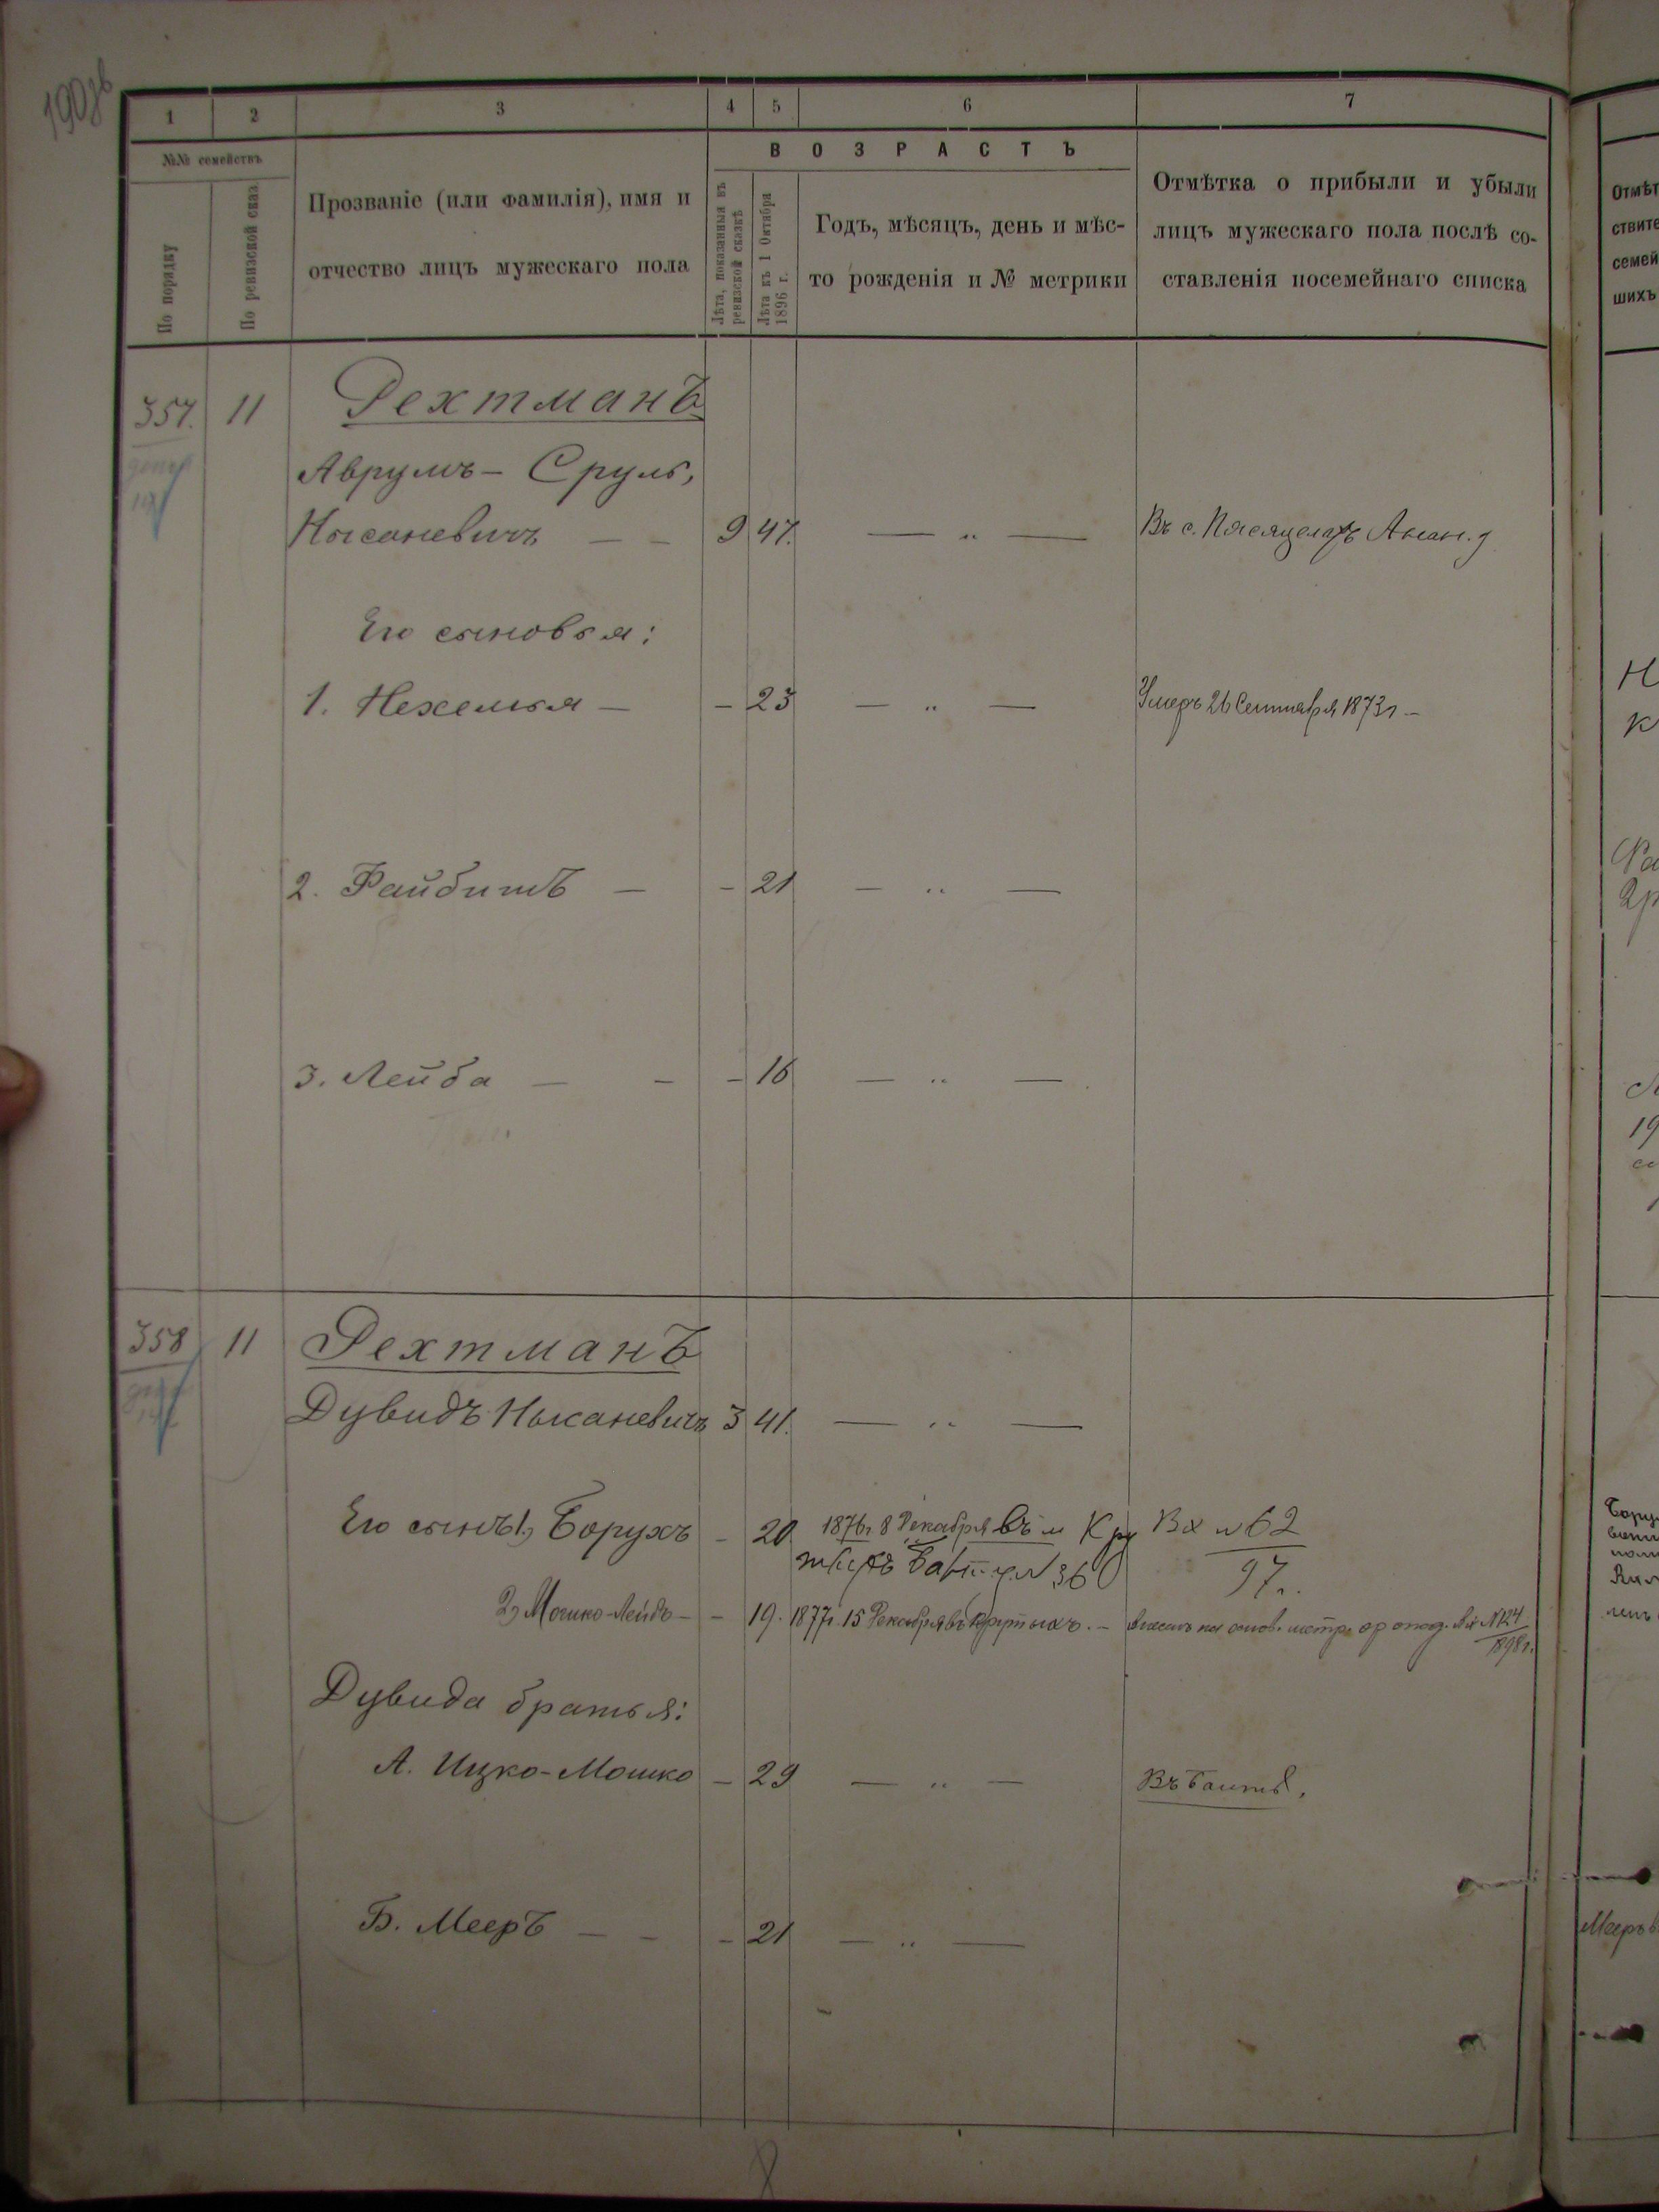 1 2 3 4 5 6 7
№№ семействъ
По порядку
По ревизской сказ.
Прозваніе (или фамилія), имя и
отчество лицъ мужескаго пола
ВОЗРАСТЪ
Лѣта, показанныя въ
ревизской сказкѣ
Лѣта къ 1 Октября
1896 г.
Годъ, мѣсяцъ, день и мѣс-
то рожденія и № метрики
Отмѣтка о прибыли и убыли
лицъ мужескаго пола послѣ со-
ставленія посемейнаго списка
357. 11 Рехтманъ
Аврумъ - Сруль,
Нысоневичъ — — 9 47. — „ — Въ с. Анан. у.
Его сыновья:
1. Нехемья — - 23 — „ — Умеръ 26 Сентября 1873 г —
2. Файбишъ — - 21 — „ —
3. Лейба — - - 16 — „ —
358 11 Рехтманъ
Дувидъ Нысаневичъ 3 41. — „ —
Его сынъ 1, Борухъ - 20 1876 г 8 Декабря въ м Кру Вх № 62
тыхъ Балт. у. № 36 97 г.
2, Мошко-Лейбъ - - 19. 1877 г. 15 Декабря въ Крутыхъ. — внесенъ на основ. метр. Вх № 124
1898 г.
Дувида братья:
А. Ицко-Мошко - 29 — „ — Въ Балтѣ.
Б. Мееръ — - - 21 — „ —
Отмѣт
ствите
семей
шихъ
Мееръ в